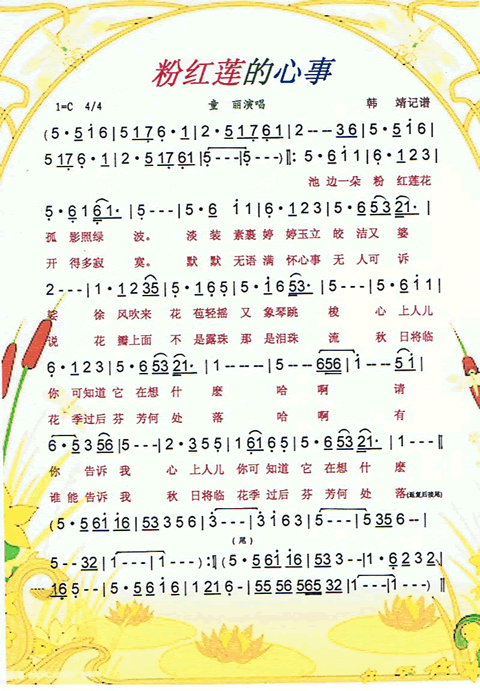 粉红莲的心事
1=C 4/4 童 丽演唱 韩 靖记谱
(5·5i6|5176·1|2·5176i|2---36|5·5i6|
5176·1|2·5176i|5---|5---):‖:5·6i1|6·123|
池 边一朵 粉 红莲花
5·6161·|5---|5·6 i1|6·1265|5·653321·|
孤 影照绿 波。 淡 装 素裹 婷 婷玉立 皎 洁又 婆
开 得多寂 寞。 默 默 无语 满 怀心事 无 人可 诉
2---|1·1235|2·1765|5·1653·|2---|
娑 徐 风吹来 花 苞轻摇 又 象琴跳 梭 心 上人儿
说 花 瓣上面 不 是露珠 那 是泪珠 流 秋 日将临
6·123|5·65321·|1----|5----656|1---51|
你 可知道 它 在想 什 麽 哈 啊 请
花 季过后 芬 芳何 处 落 哈 啊 有
6·5356|5---|2·355|7---|16165|5·65321·|1---‖
你 告诉 我 心 上人儿 你可 知道 它 在想 什 麽
谁能 告诉 我 秋 日将临 花季 过后 芬 芳何 处 落(返复后接尾)
(5·561i16|53356|3---|3i63|5---|5356--|
(尾)
5--32|1---|1---):‖(5·561i16|533--|1·6232
165--|5·561i6|1216·|555656532|1---|1---)‖